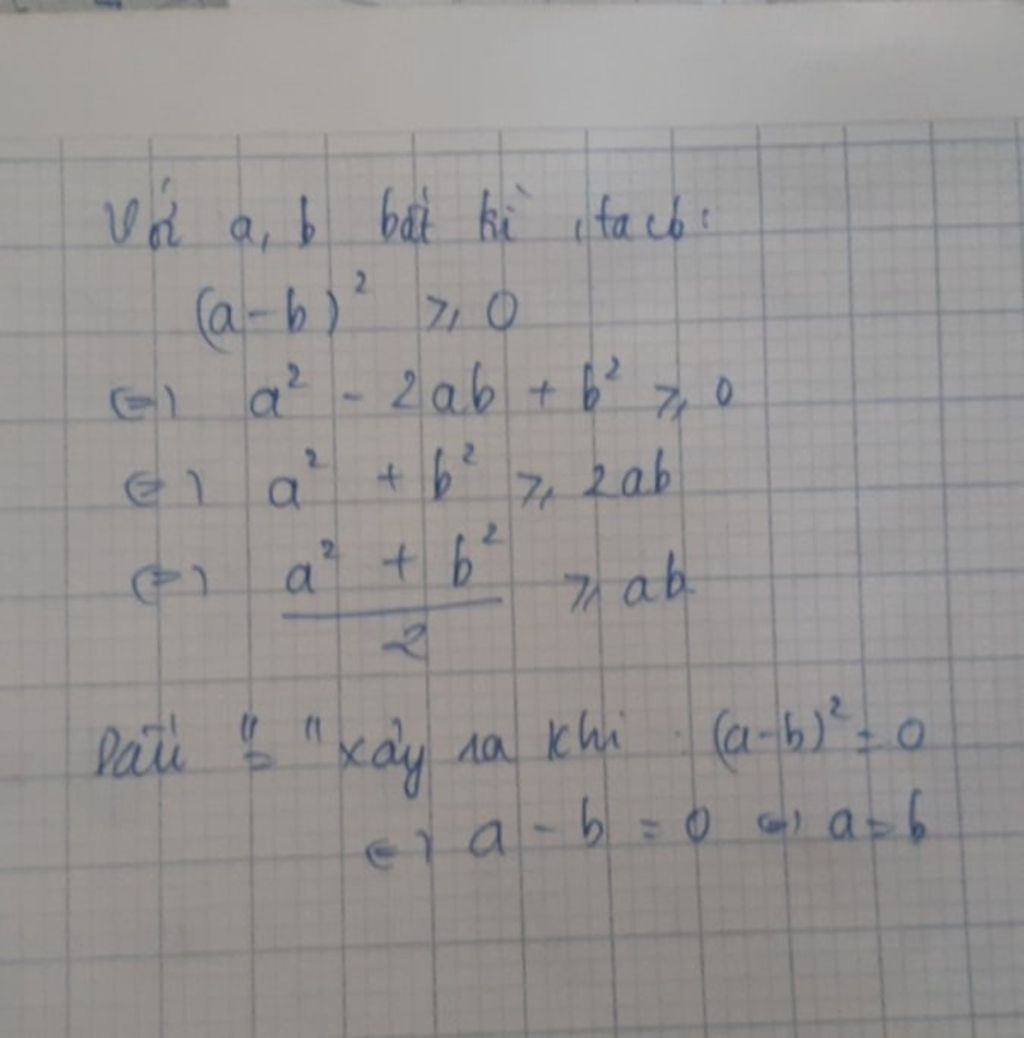 Với a, b bất kì, ta có:
(a-b)² ≥ 0
⇔ a² - 2ab + b² ≥ 0
⇔ a² + b² ≥ 2ab
⇔ (a² + b²)/2 ≥ ab
Dấu "=" xảy ra khi (a-b)² = 0
⇔ a - b = 0 ⇔ a = b